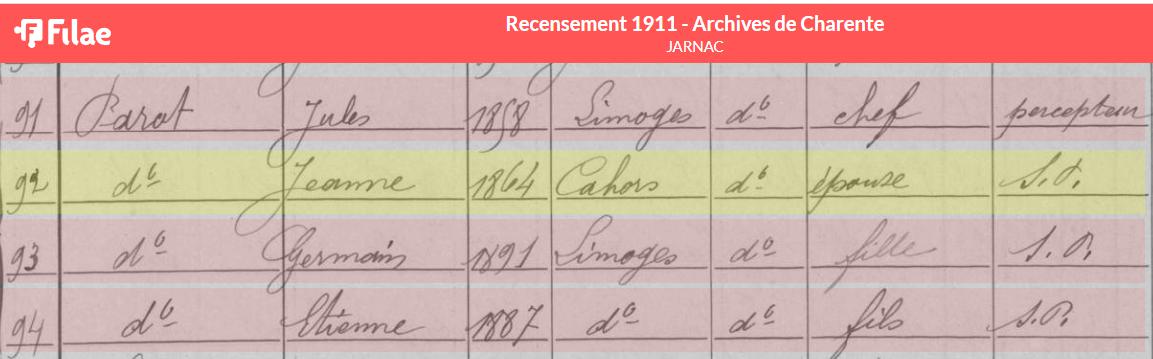 Filae
Recensement 1911 - Archives de Charente
JARNAC
91 Parot Jules 1858 Limoges dº chef percepteur
92 dº Jeanne 1864 Cahors dº épouse S.P.
93 dº Germain 1891 Limoges dº fille S.P.
94 dº Etienne 1887 dº dº fils S.P.